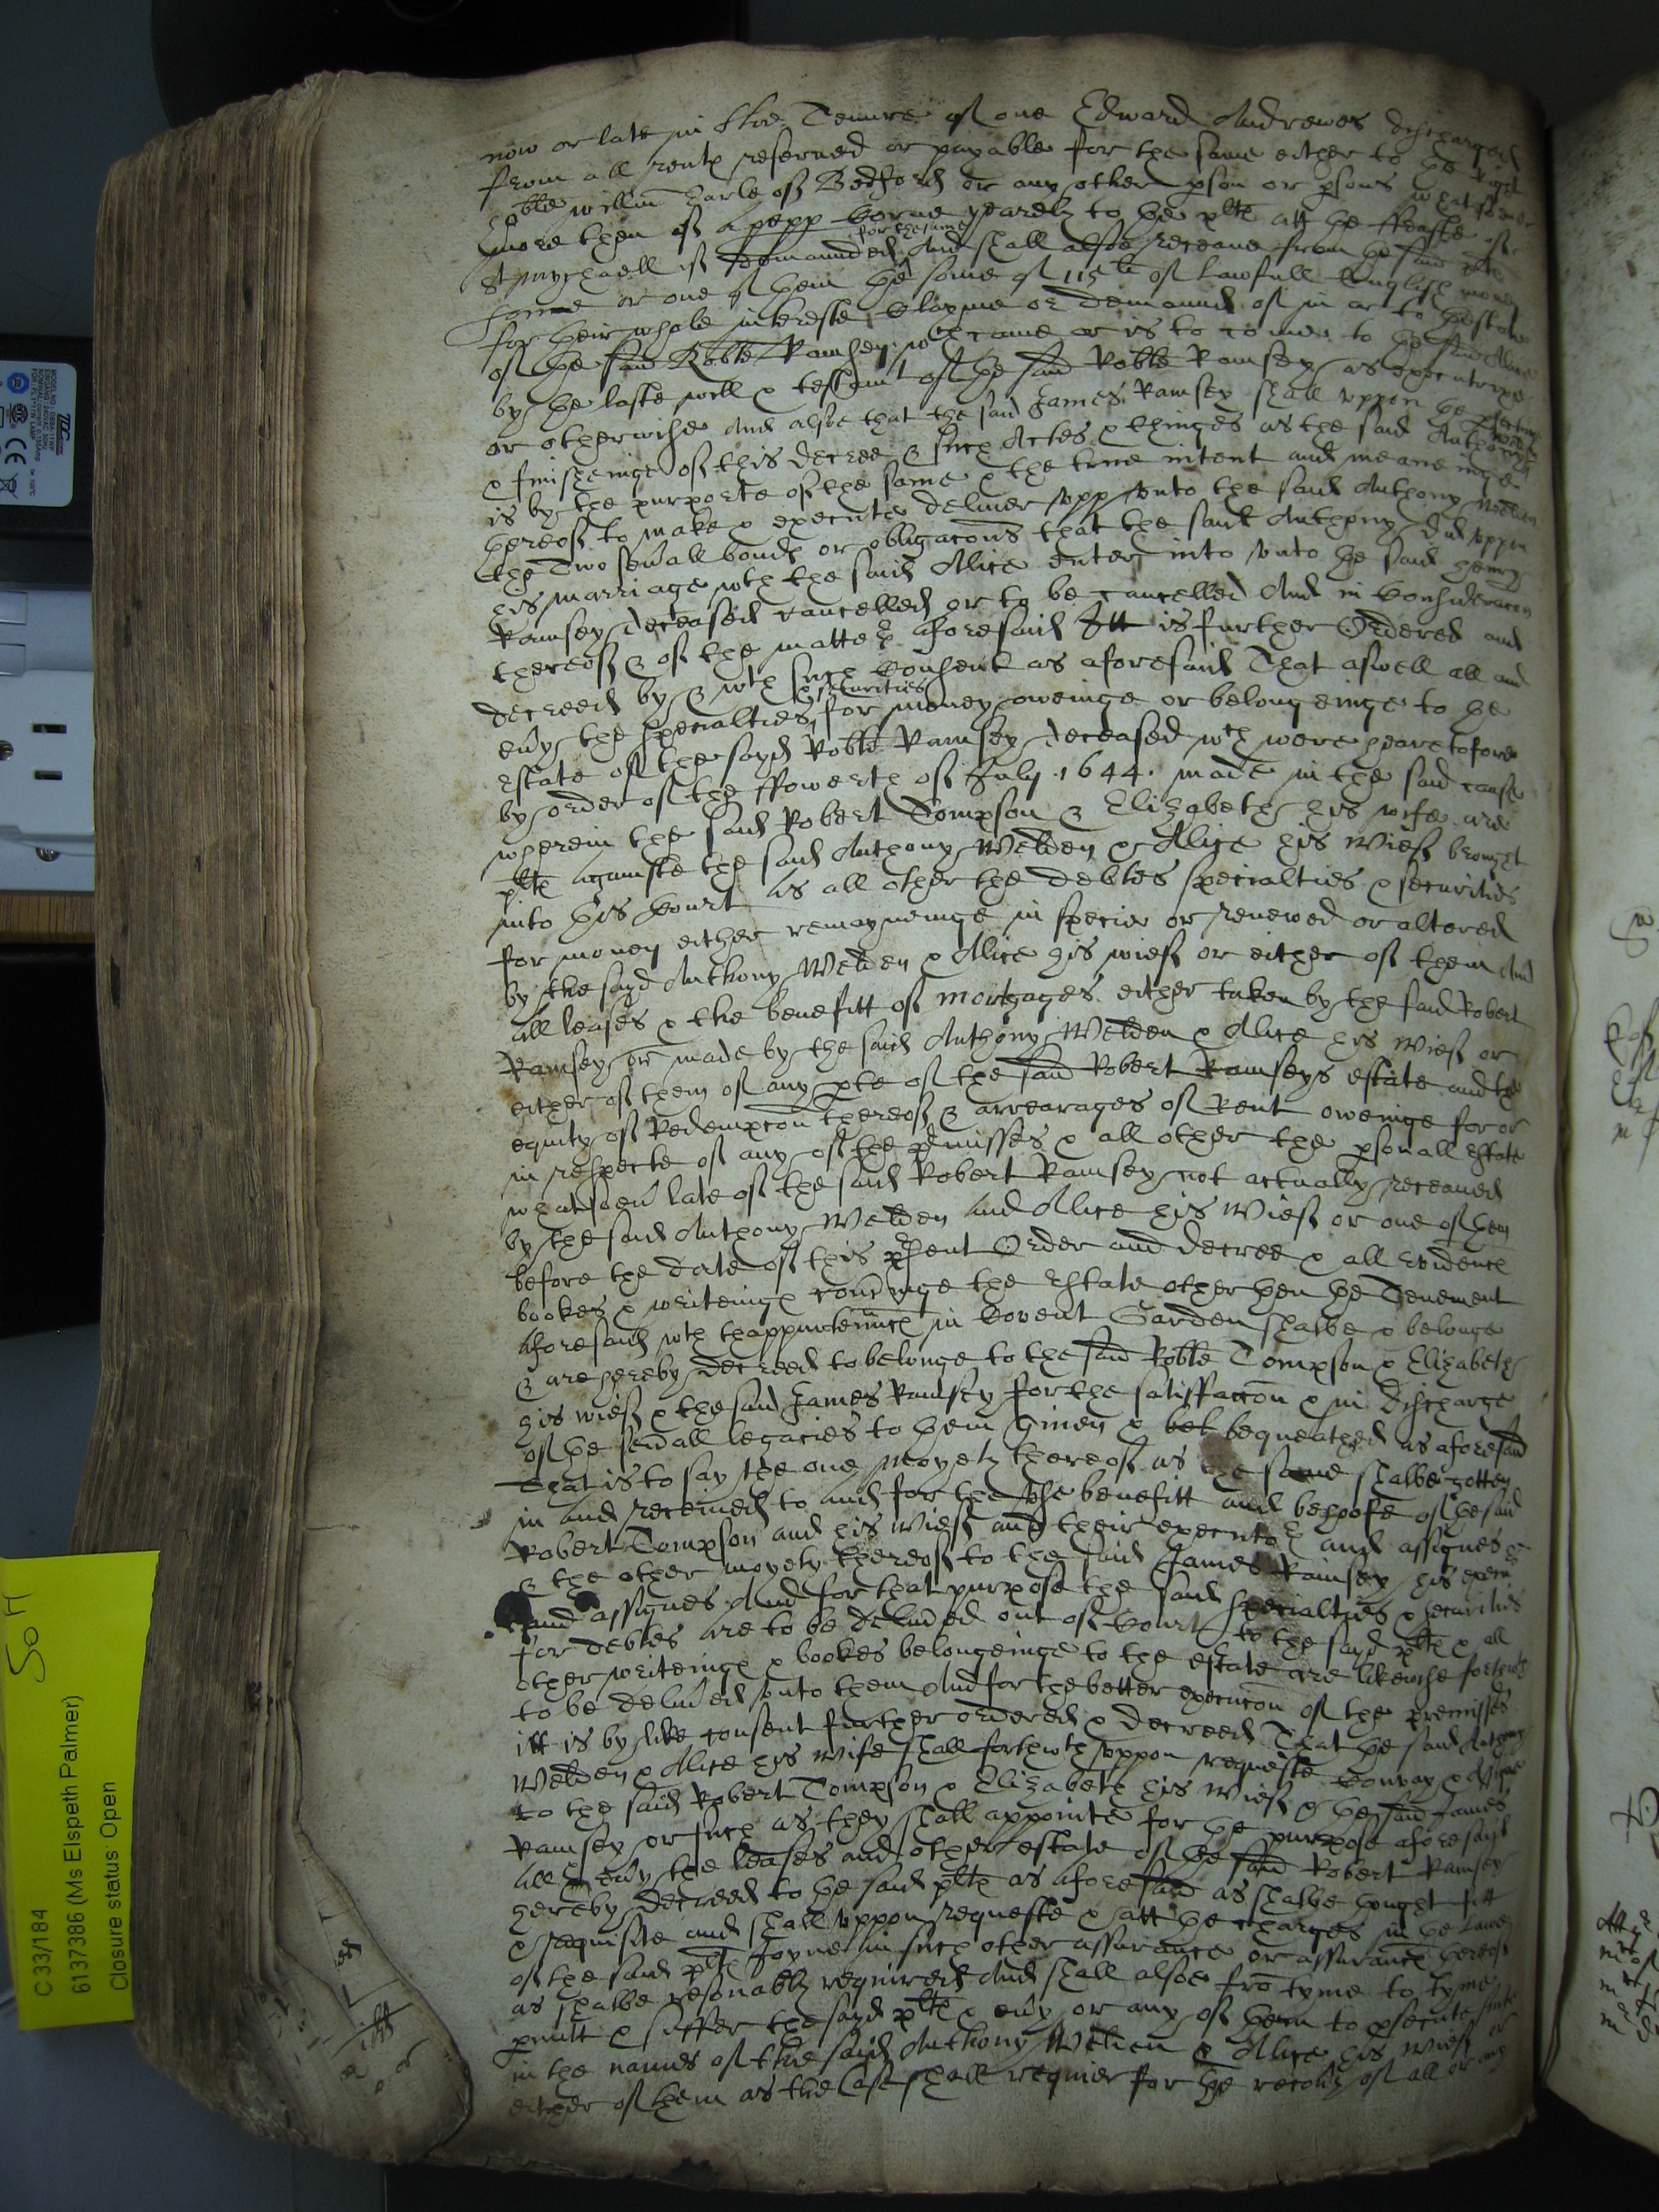 now or late in the Tenure of one Edward Andrewes discharged
from all rentp reserved or payable for the same either to the right
hoble willm Earle of Bedford or any other pson or psons whatsoever
more then of a pepp corne yearely to be plte att the ffeaste of
St Mychaell if demaunded for the same And shall alsoe receave from the said plts
some or one of them the some of 115li of lawfull English money
for their whole intereste clayme or demaund of in or to the estate
of the said Robte Ramsey wch came or is to come to the said Alice
by the laste will & testamt of the said Robte Ramsey as executrixe
or otherwise And alsoe that the said James Ramsey shall uppon the pfecting
& finisheinge of this decree & such Actes & thinges as the said Anthony Welden
is by the purporte of the same & the true intent and meaneinge
thereof to make & execute deliver upp unto the said Anthony Welden
the Two sevall bondp or obligacons that the said Anthony did uppon
his marriage wth the said Alice enter into unto the said Henry
Ramsey deceased cancelled or to be cancelled And in consideracon
thereof & of the matters aforesaid Itt is further Ordered and
decreed by & wth such consent as aforesaid That aswell all and
evy the specialties & securities for money oweinge or belongeinge to the
estate of the sayd Robte Ramsey deceased wch were heretofore
by order of the ffowerth of July .1644. made in the said cause
wherein the said Robert Tompson & Elizabeth his wife are
plts againste the said Anthony Welden & Alice his wief brought
into this Court As all other the debtes specialties & securities
for money either remayneinge in specie or renewed or altored
by the sayd Anthony Welden & Alice his wief or either of them And
all leases & the benefitt of mortgages either taken by the said Robert
Ramsey or made by the said Anthony Welden & Alice his wief or
either of them of any pte of the said Robert Ramseys estate and the
equity of Redempcon thereof & arrearages of Rent oweinge for or
in respecte of any of the pmisses & all other the psonall estate
whatsoev late of the said Robert Ramsey not actually receaved
by the said Anthony Welden and Alice his wief or one of them
before the date of this psent Order and decree & all evidencp
bookes & writeingp concninge the estate other then the Tenement
aforesaid wth thappurtenncp in Covent Garden shalbe & belonge
& are hereby decreed to belonge to the said Robte Tompson & Elizabeth
his wief & the said James Ramsey for the satisffaccon & in discharge
of the sevall legacies to them given & bet bequeathed as aforesaid
That is to say the one moyety thereof as the same shalbe gotten
in and receaved to and for the use benefitt and behoofe of the said
Robert Tompson and his wief and their executors and assignes
& the other moyety thereof to the said James Ramsey his execrs
and assignes And for that purpose the said specialties & securities
for debtes are to be delived out of Court to the sayd plts & all
other writeingp & bookes belongeinge to the estate are likewise forthwth
to be delived unto them And for the better execucon of the premisses
itt is by like consent further ordered & decreed That the said Anthony
Welden & Alice his wife shall forthwth uppon requeste convay & Assigne
to the said Robert Tompson & Elizabeth his wief & the said James
Ramsey or such as they shall appointe for the purpose aforesayd
all & evy the leases and other estate of the said Robert Ramsey
hereby decreed to the said plts as aforesaid as shalbe thought fitt
& requisite and shall uppon requeste & att the charges in the Lawe
of the said plts Joyne in such other assurance or assurancp thereof
as shalbe resonably required And shall alsoe fro tyme to tyme
pmitt & suffer the sayd plts & evy or any of them to psecute suite
in the names of the said Anthony Welden & Alice his wief or
either of them as the Case shall requier for the recovy of all or any
C 33/184
6137386 (Ms Elspeth Palmer)
Closure status: Open